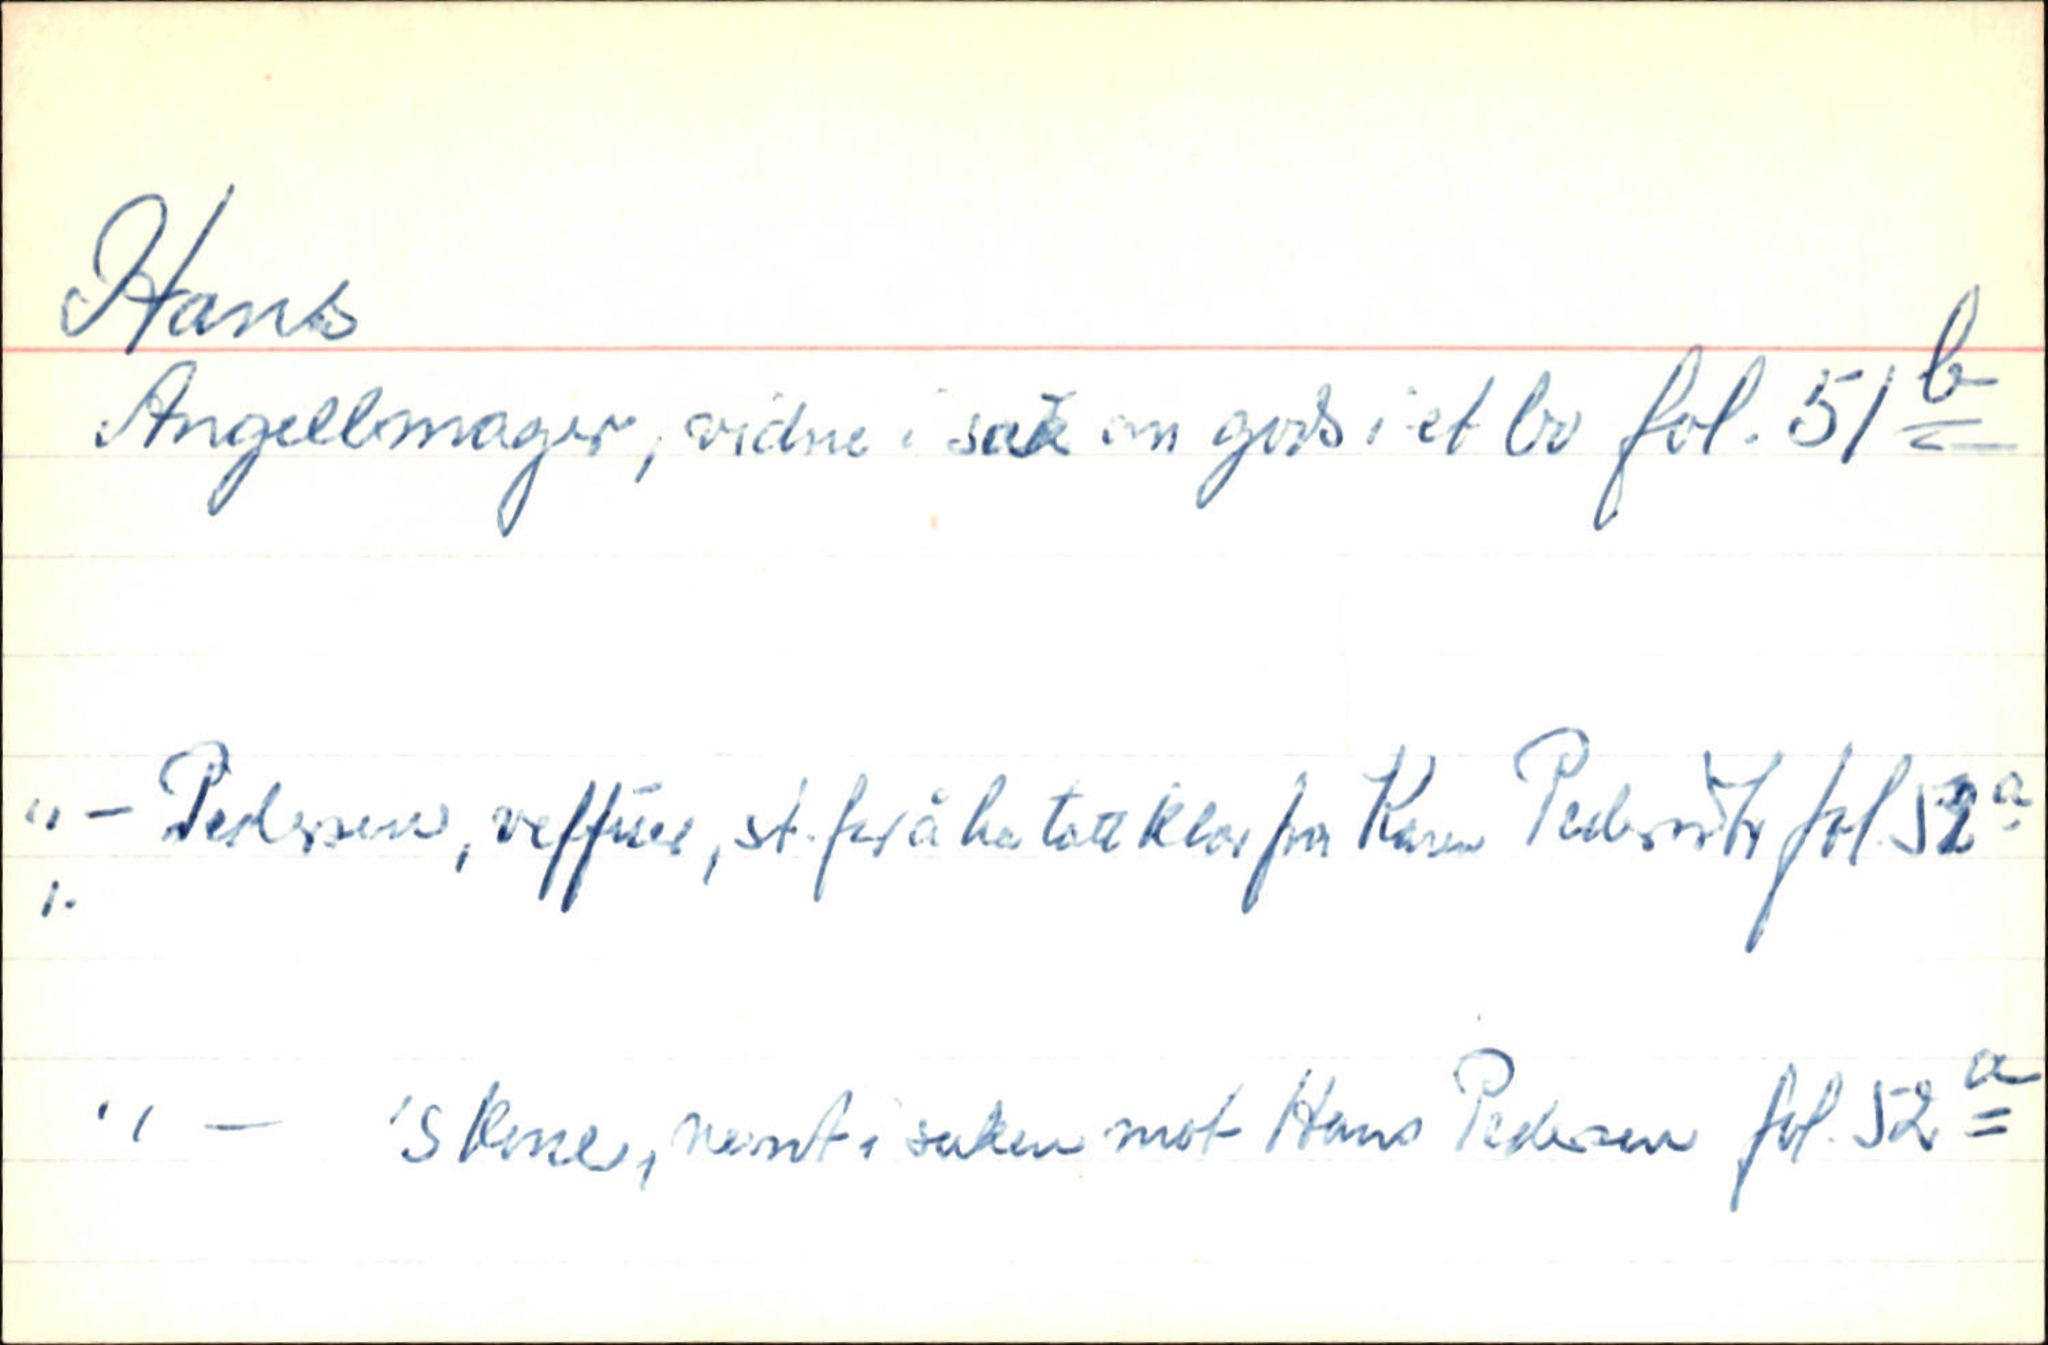 Hans
Angellmager, vidne i sak om gods i et bo fol. 51 b
" - Pedersen, st. for å ha tatt klær fra Karen Pedersdtr fol. 52 a
" -
" - 's kone, nevnt i saken mot Hans Pedersen fol. 52 a